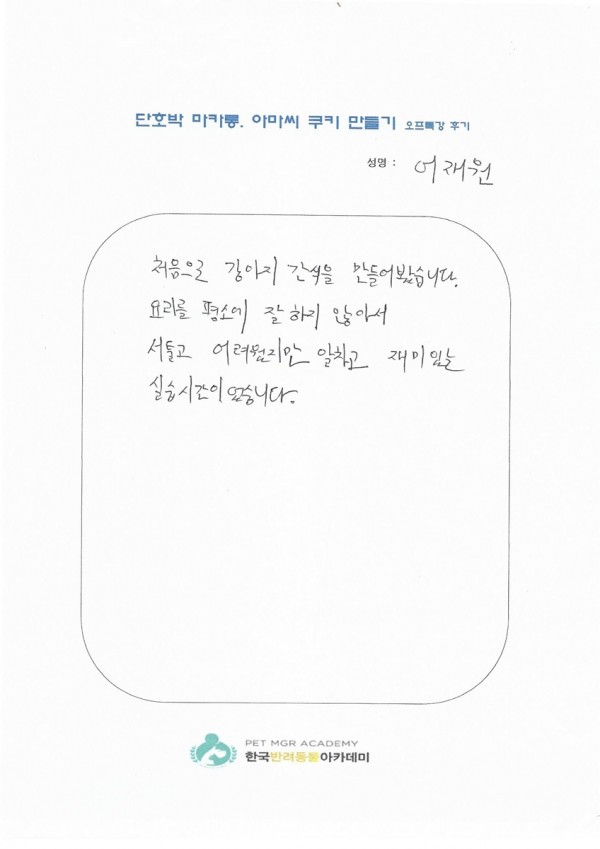 단호박 마카롱. 아마씨 쿠키 만들기 오프특강 후기
성명 : 어재원
처음으로 강아지 간식을 만들어봤습니다.
요리를 평소에 잘 하지 않아서
서툴고 어려웠지만 알차고 재미있는
실습시간이었습니다.
PET MGR ACADEMY
한국반려동물아카데미